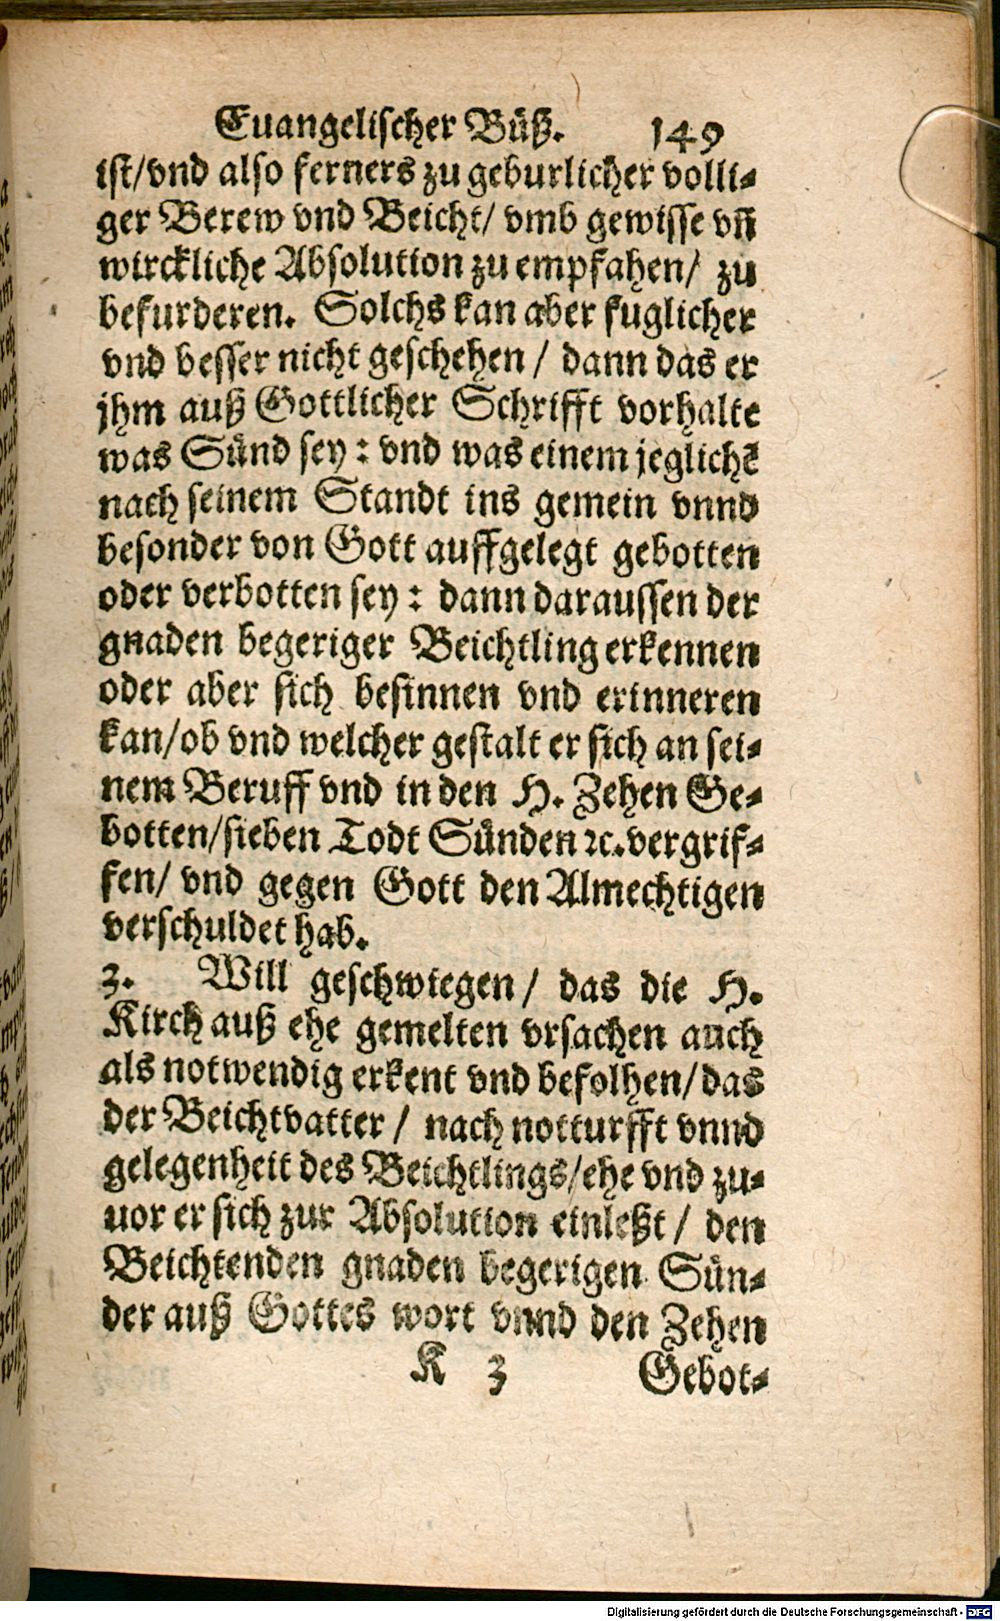 Euangelischer Büß. 149
ist/vnd also ferners zu geburlicher volli-
ger Berew vnd Beicht/ vmb gewisse vñ
wirckliche Absolution zu empfahen/ zu
befurderen. Solchs kan aber fuglicher
vnd besser nicht geschehen / dann das er
jhm auß Gottlicher Schrifft vorhalte
was Sünd sey : vnd was einem jeglichē
nach seinem Standt ins gemein vnnd
besonder von Gott auffgelegt gebotten
oder verbotten sey : dann daraussen der
gnaden begeriger Beichtling erkennen
oder aber sich besinnen vnd erinneren
kan/ob vnd welcher gestalt er sich an sei-
nem Beruff vnd in den H. Zehen Ge-
botten/sieben Todt Sünden ꝛc. vergrif-
fen/ vnd gegen Gott den Almechtigen
verschuldet hab.
3. Will geschwiegen / das die H.
Kirch auß ehe gemelten vrsachen auch
als notwendig erkent vnd befolhen/das
der Beichtvatter / nach notturfft vnnd
gelegenheit des Beichtlings/ehe vnd zu-
uor er sich zur Absolution einleßt / den
Beichtenden gnaden begerigen Sün-
der auß Gottes wort vnnd den Zehen
K 3 Gebot-
Digitalisierung gefördert durch die Deutsche Forschungsgemeinschaft - DFG